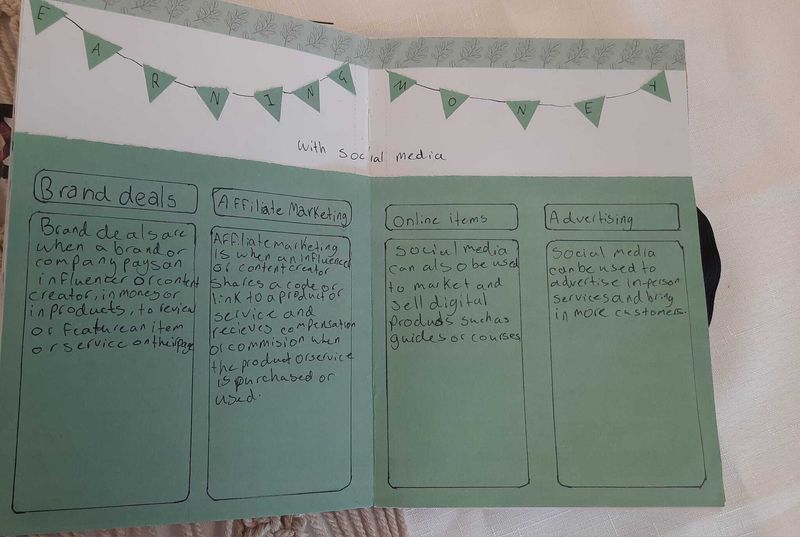 EARNING MONEY
with social media
Brand deals
Brand deals are
when a brand or
company pays an
influencer or content
creator, in money or
in products, to review
or feature an item
or service on their page
Affiliate Marketing
Affiliate marketing
is when an influencer
or content creator
shares a code or
link to a product or
service and
recieves compensation
or commision when
the product or service
is purchased or
used.
Online items
Social media
can also be used
to market and
sell digital
products such as
guides or courses
Advertising
Social media
can be used to
advertise in-person
services and bring
in more customers.